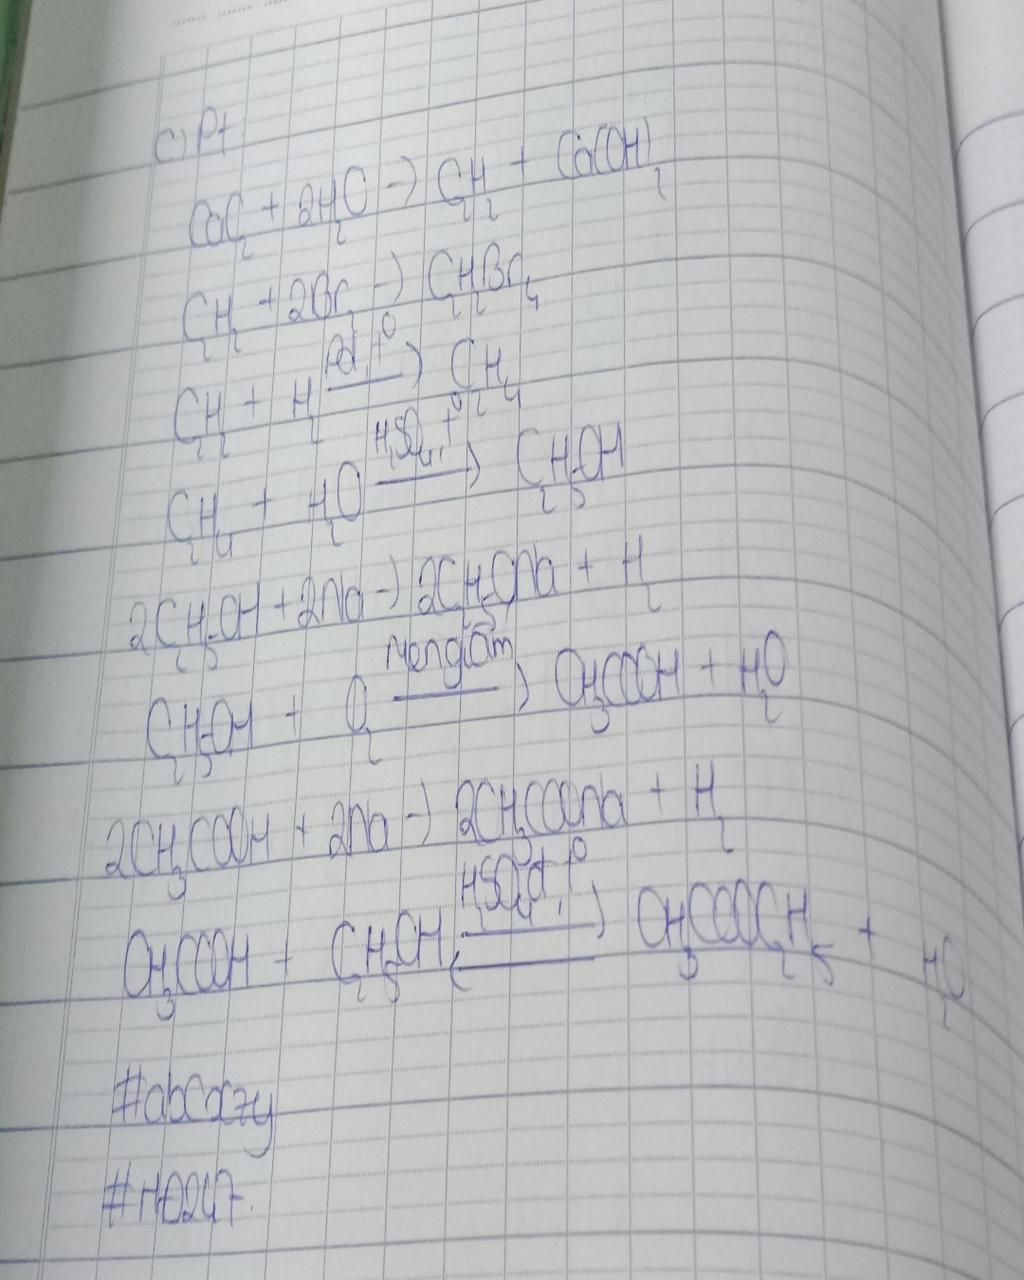 c) Pt
CaC2 + 2H2O → C2H2 + Ca(OH)2
C2H2 + 2Br2 → C2H2Br4
C2H2 + H2 —Pd, t°→ C2H4
C2H4 + H2O —H2SO4, t°→ C2H5OH
2C2H5OH + 2Na → 2C2H5ONa + H2
C2H5OH + O2 —Men giấm→ CH3COOH + H2O
2CH3COOH + 2Na → 2CH3COONa + H2
CH3COOH + C2H5OH ⇌ H2SO4 đ, t° CH3COOC2H5 + H2O
#abcxyz
#H0247